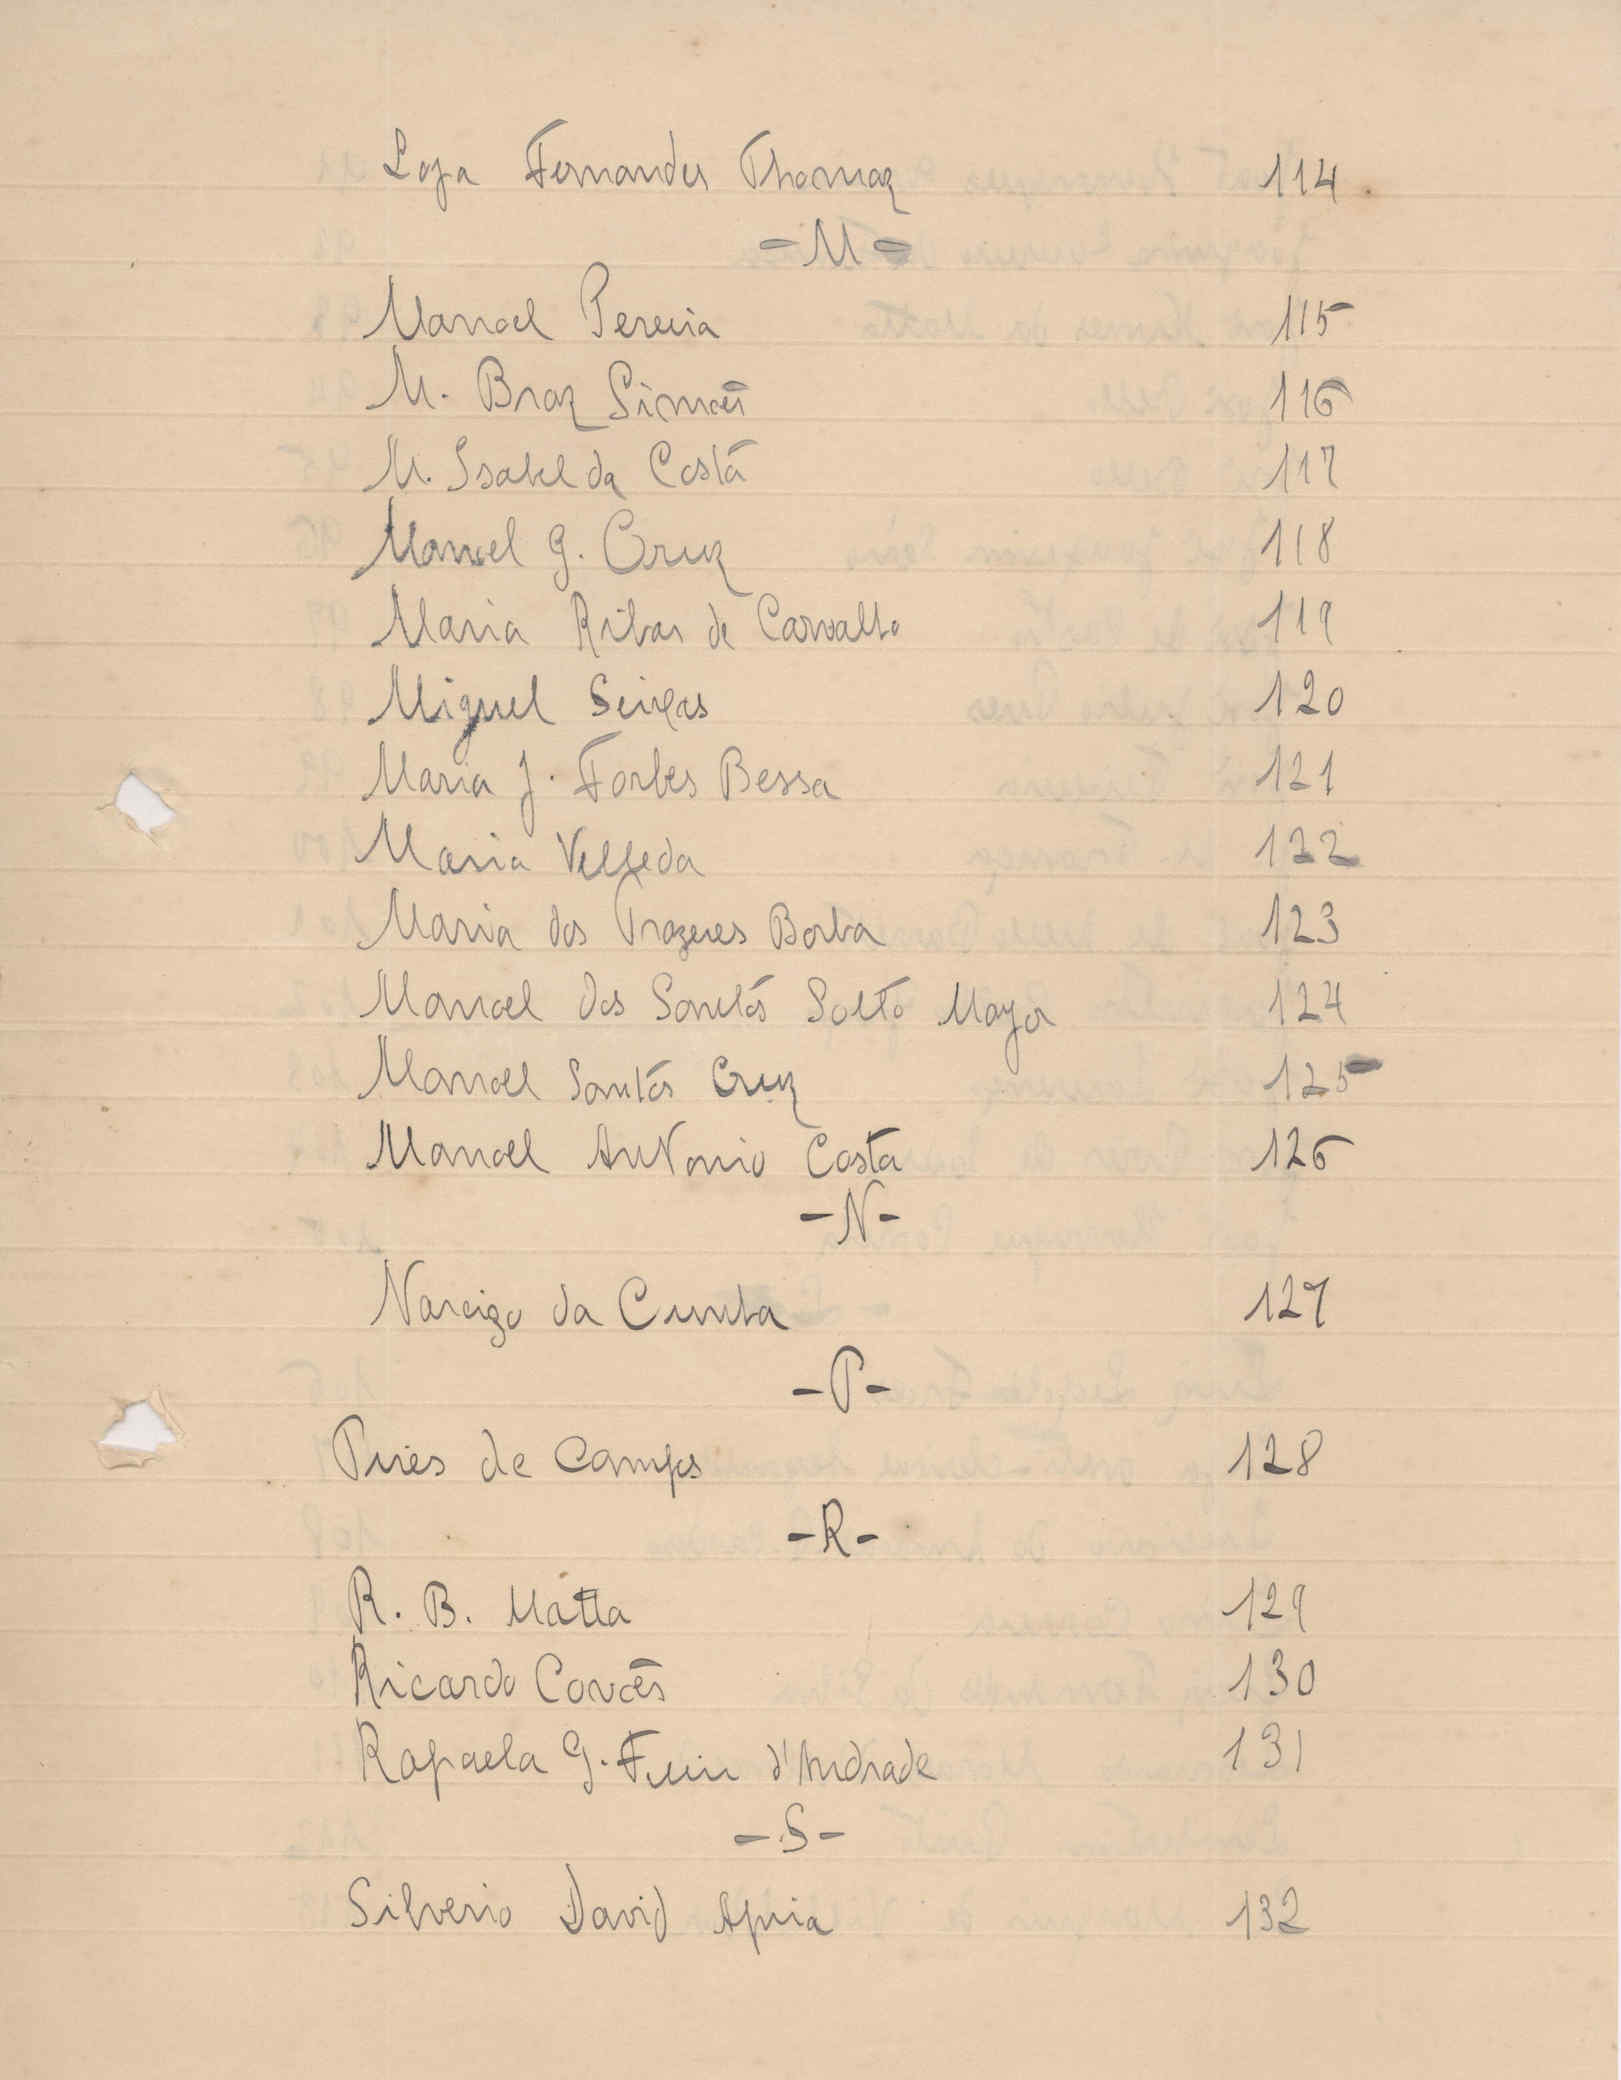 Loja Fernandes Thomaz 114
- M -
Manoel Pereira 115
M. Braz Simões 116
M. Isabel da Costa 117
Manoel G. Cruz 118
Maria Ribas de Carvalho 119
Miguel Seixas 120
Maria J. Forbes Bessa 121
Maria Velleda 122
Maria dos Prazeres Borba 123
Manoel dos Santos Solto Mayor 124
Manoel Santos Cruz 125
Manoel Antonio Costa 126
- N -
Narcizo da Cunha 127
- P -
Pires de Campos 128
- R -
R. B. Matta 129
Ricardo Covões 130
Rafaela G. d'Andrade 131
- S -
Silverio David 132